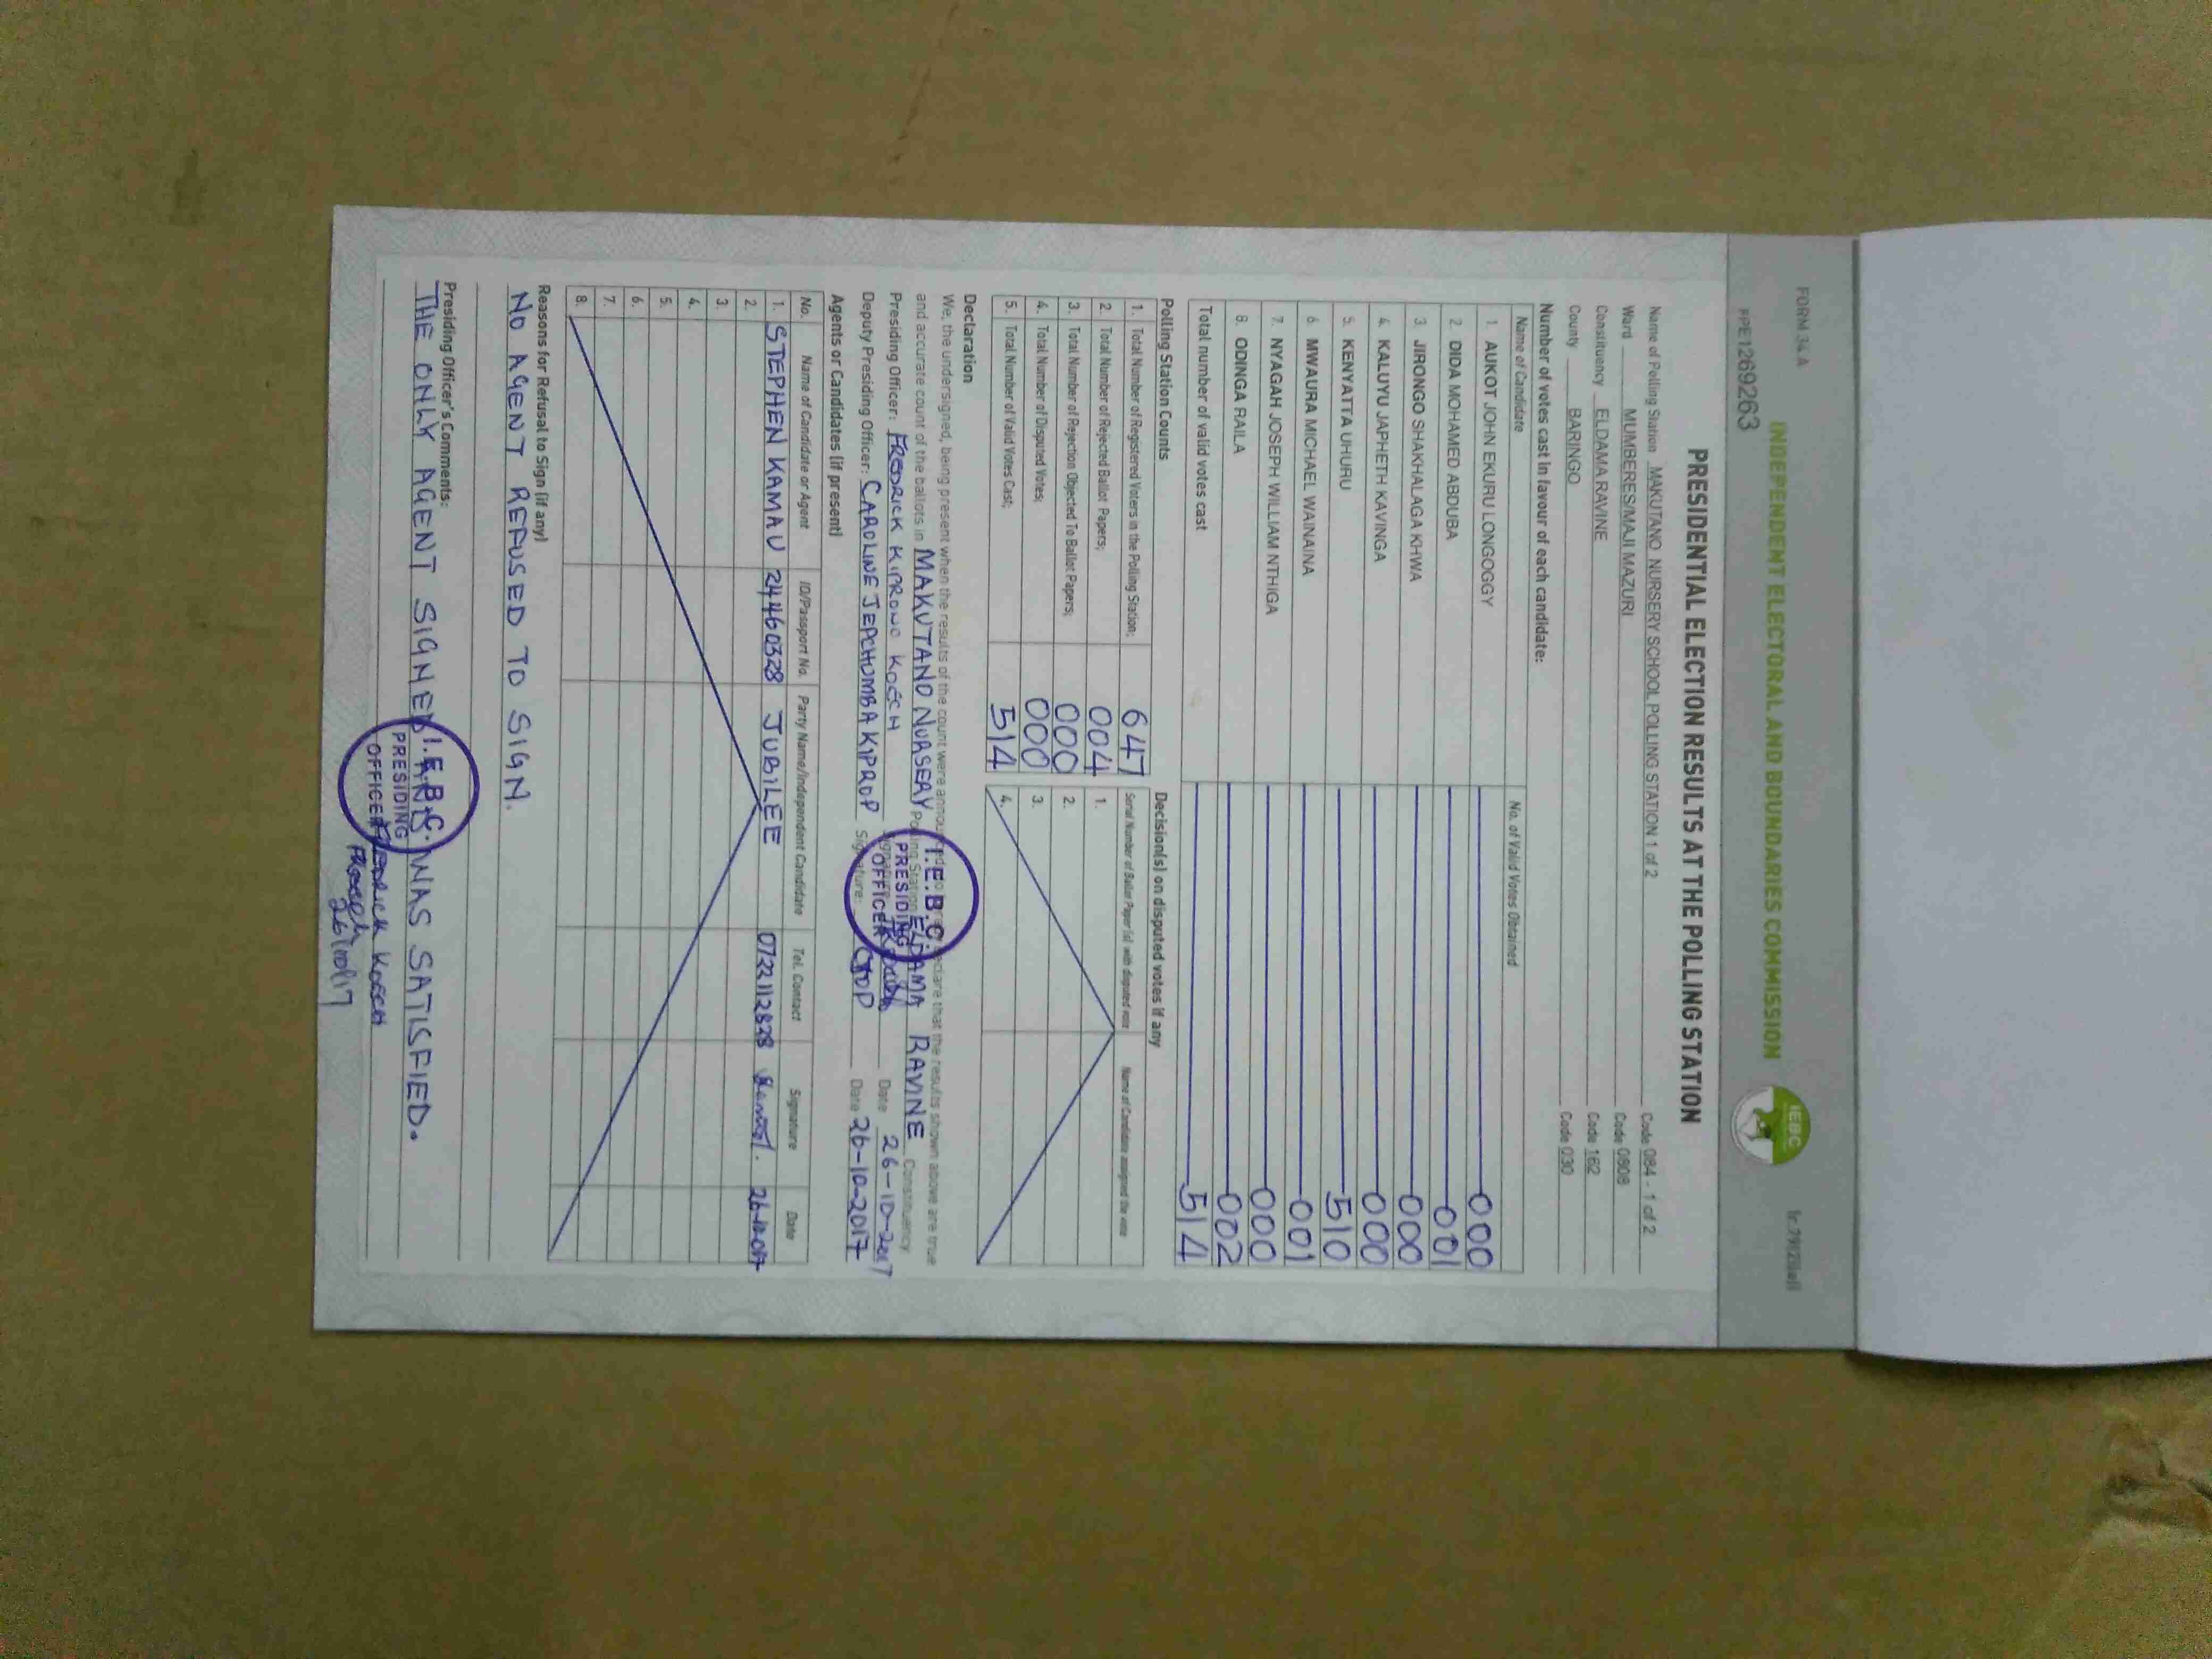 FORM 34 A
INDEPENDENT ELECTORAL AND BOUNDARIES COMMISSION
IEBC
PRESIDENTIAL ELECTION RESULTS AT THE POLLING STATION
Name of Polling Station MAKUTANO NURSERY SCHOOL POLLING STATION 1 of 2 Code 084 - 1 of 2
Ward MUMBERES/MAJI MAZURI Code 0808
Constituency ELDAMA RAVINE Code 162
County BARINGO Code 030
Number of votes cast in favour of each candidate:
Name of Candidate No. of Valid Votes Obtained
1. AUKOT JOHN EKURU LONGOGGY 000
2. DIDA MOHAMED ABDUBA 001
3. JIRONGO SHAKHALAGA KHWA 000
4. KALUYU JAPHETH KAVINGA 000
5. KENYATTA UHURU 510
6. MWAURA MICHAEL WAINAINA 001
7. NYAGAH JOSEPH WILLIAM NTHIGA 000
8. ODINGA RAILA 002
Total number of valid votes cast 514
Polling Station Counts
1. Total Number of Registered Voters in the Polling Station; 647
2. Total Number of Rejected Ballot Papers; 004
3. Total Number of Rejection Objected To Ballot Papers; 000
4. Total Number of Disputed Votes; 000
5. Total Number of Valid Votes Cast; 514
Decision(s) on disputed votes if any
Serial Number of Ballot Paper (s) with disputed vote Name of Candidate assigned the vote
1.
2.
3.
4.
Declaration
We, the undersigned, being present when the results of the count were announced, do declare that the results shown above are true
and accurate count of the ballots in MAKUTANO NURSERY Polling Station ELDAMA RAVINE Constituency
Presiding Officer: FREDRICK KIPRONO KOECH Date 26-10-2017
Deputy Presiding Officer: CAROLINE JEPCHUMBA KIPROP Signature: Date 26-10-2017
I.E.B.C.
PRESIDING
OFFICER
Agents or Candidates (if present)
No. Name of Candidate or Agent ID/Passport No. Party Name/Independent Candidate Tel. Contact Signature Date
1. STEPHEN KAMAU 24460328 JUBILEE 0722112828
2.
3.
4.
5.
6.
7.
8.
Reasons for Refusal to Sign (if any)
NO AGENT REFUSED TO SIGN.
Presiding Officer's Comments:
THE ONLY AGENT SIGNED WAS SATISFIED.
I.E.B.C.
PRESIDING
OFFICER
FREDRICK KOECH
26/10/17